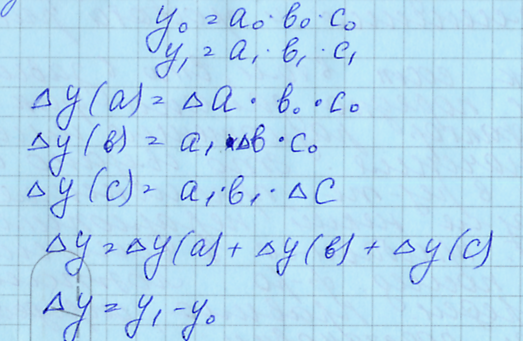 y₀ = a₀ · в₀ · c₀
y₁ = a₁ · в₁ · c₁
Δy(a) = Δa · в₀ · c₀
Δy(в) = a₁ · Δв · c₀
Δy(c) = a₁ · в₁ · Δc
Δy = Δy(a) + Δy(в) + Δy(c)
Δy = y₁ - y₀